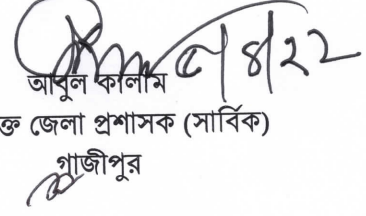 ৫/৪/২২
আবুল কালাম
ক্ত জেলা প্রশাসক (সার্বিক)
গাজীপুর